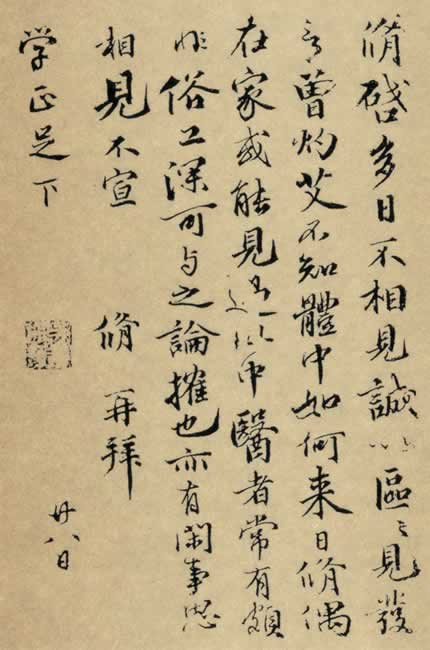 脩啓多日不相見誠以區區見發
言曾灼艾不知體中如何来日脩偶
在家或能見過此中醫者常有頗
非俗工深可与之論搉也亦有閑事思
相見不宣 脩再拜
学正足下 廿八日